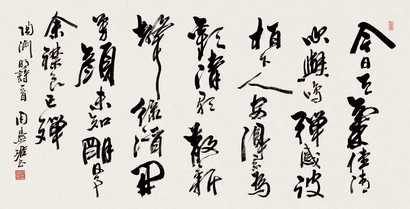 今日天氣佳清
吹與鳴彈感彼
柏下人安得不為
歡清歌散新
聲綠酒開
芳顏未知明日事
余襟良已殫
陶淵明詩一首 周